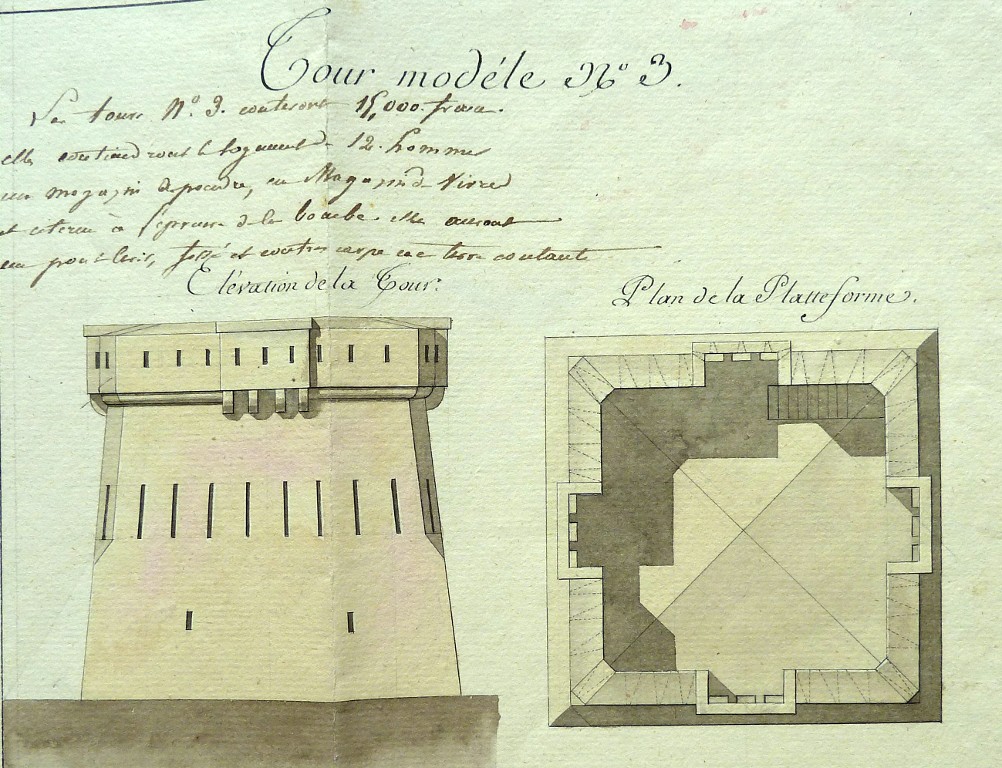 Tour modéle Nº 3.
Les tours Nº. 3. couteront 15,000. francs.
elles contiendront le logement de 12. hommes
un magazin de poudre, un Magazin de Vivres
et citerne à l'épreuve de la bombe. elles auront
un pont levis, fossé et contrescarpe en terre coulante
Elévation de la Tour.
Plan de la Platteforme.